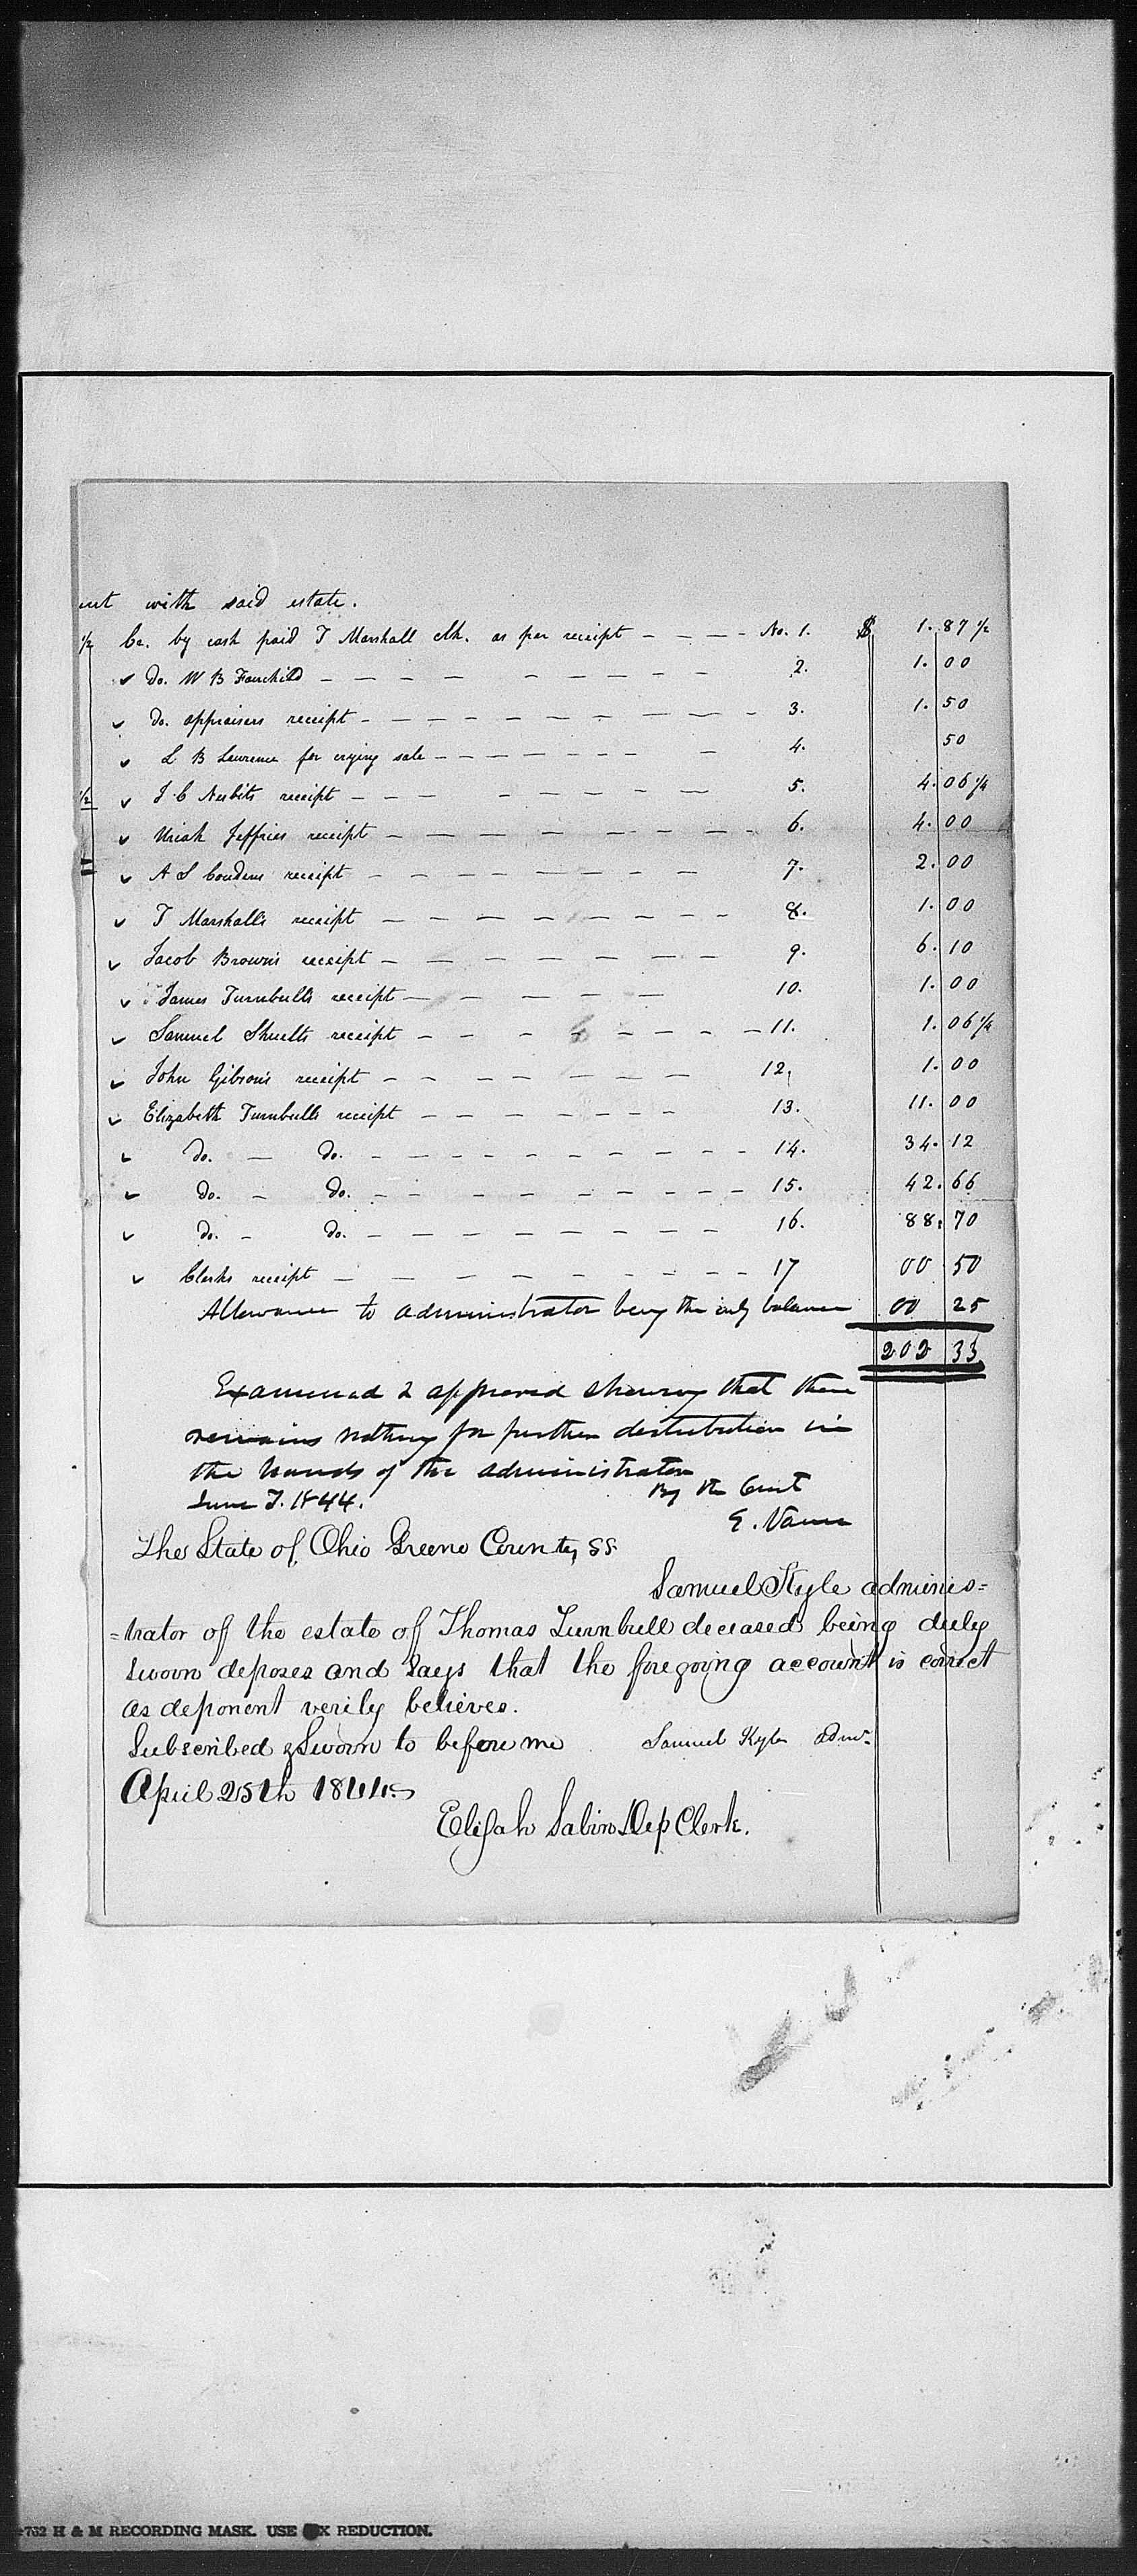 with said estate.
1/2 Cr. by cash paid T Marshall Clk. as per receipt - - - - No. 1. $ 1.87 1/2
✓ Do. W B Fairchild - - - - - - - - - - 2. 1.00
✓ Do. appraisers receipt - - - - - - - - - - 3. 1.50
✓ L B Lawrence for crying sale - - - - - - - 4. 50
1/2 ✓ J C Nesbits receipt - - - - - - - - - 5. 4.06 1/4
✓ Uriah Jeffries receipt - - - - - - - - - - 6. 4.00
✓ A S Coudens receipt - - - - - - - - 7. 2.00
✓ T Marshalls receipt - - - - - - - - - 8. 1.00
✓ Jacob Browns receipt - - - - - - - - 9. 6.10
✓ James Turnbulls receipt - - - - - - 10. 1.00
✓ Samuel Shuelts receipt - - - - - - - - - 11. 1.06 1/4
✓ John Gibsons receipt - - - - - - - - 12. 1.00
✓ Elizabeth Turnbulls receipt - - - - - - - 13. 11.00
✓ do. - do. - - - - - - - - - - 14. 34.12
✓ do. - do. - - - - - - - - - 15. 42.66
✓ do. - do. - - - - - - - - - 16. 88.70
✓ Clerks receipt - - - - - - - - - - 17 00 50
Allowance to administrator being the only balance 00 25
202 33
Examined & approved showing that there
remains nothing for further distribution in
the hands of the administrator
June T. 1844. By the Court
E. Vance
The State of Ohio Greene County SS.
Samuel Kyle adminis=
=trator of the estate of Thomas Turnbull deceased being duly
sworn deposes and says that the foregoing account is correct
as deponent verily believes.
Subscribed & Sworn to before me Samuel Kyle Admr.
April 25th 1844
Elijah Sabin Dep Clerk.
H & M RECORDING MASK. USE X REDUCTION.